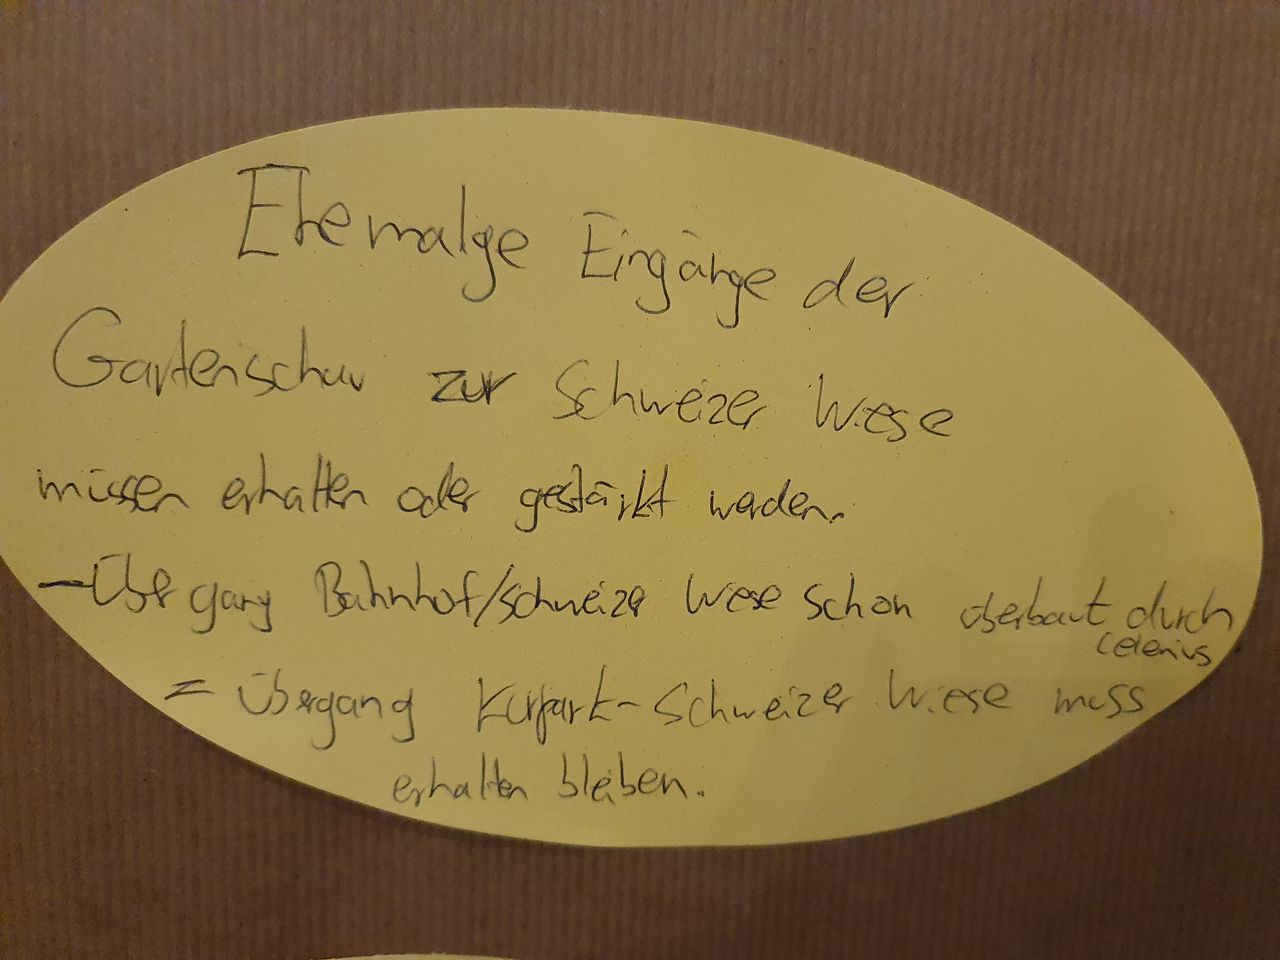 Ehemalge Eingänge der
Gartenschau zur Schweizer Wiese
müssen erhalten oder gestärkt werden.
- Übergang Bahnhof/Schweizer Wiese schon überbaut durch
Celenius
= Übergang Kurpark-Schweizer Wiese muss
erhalten bleiben.